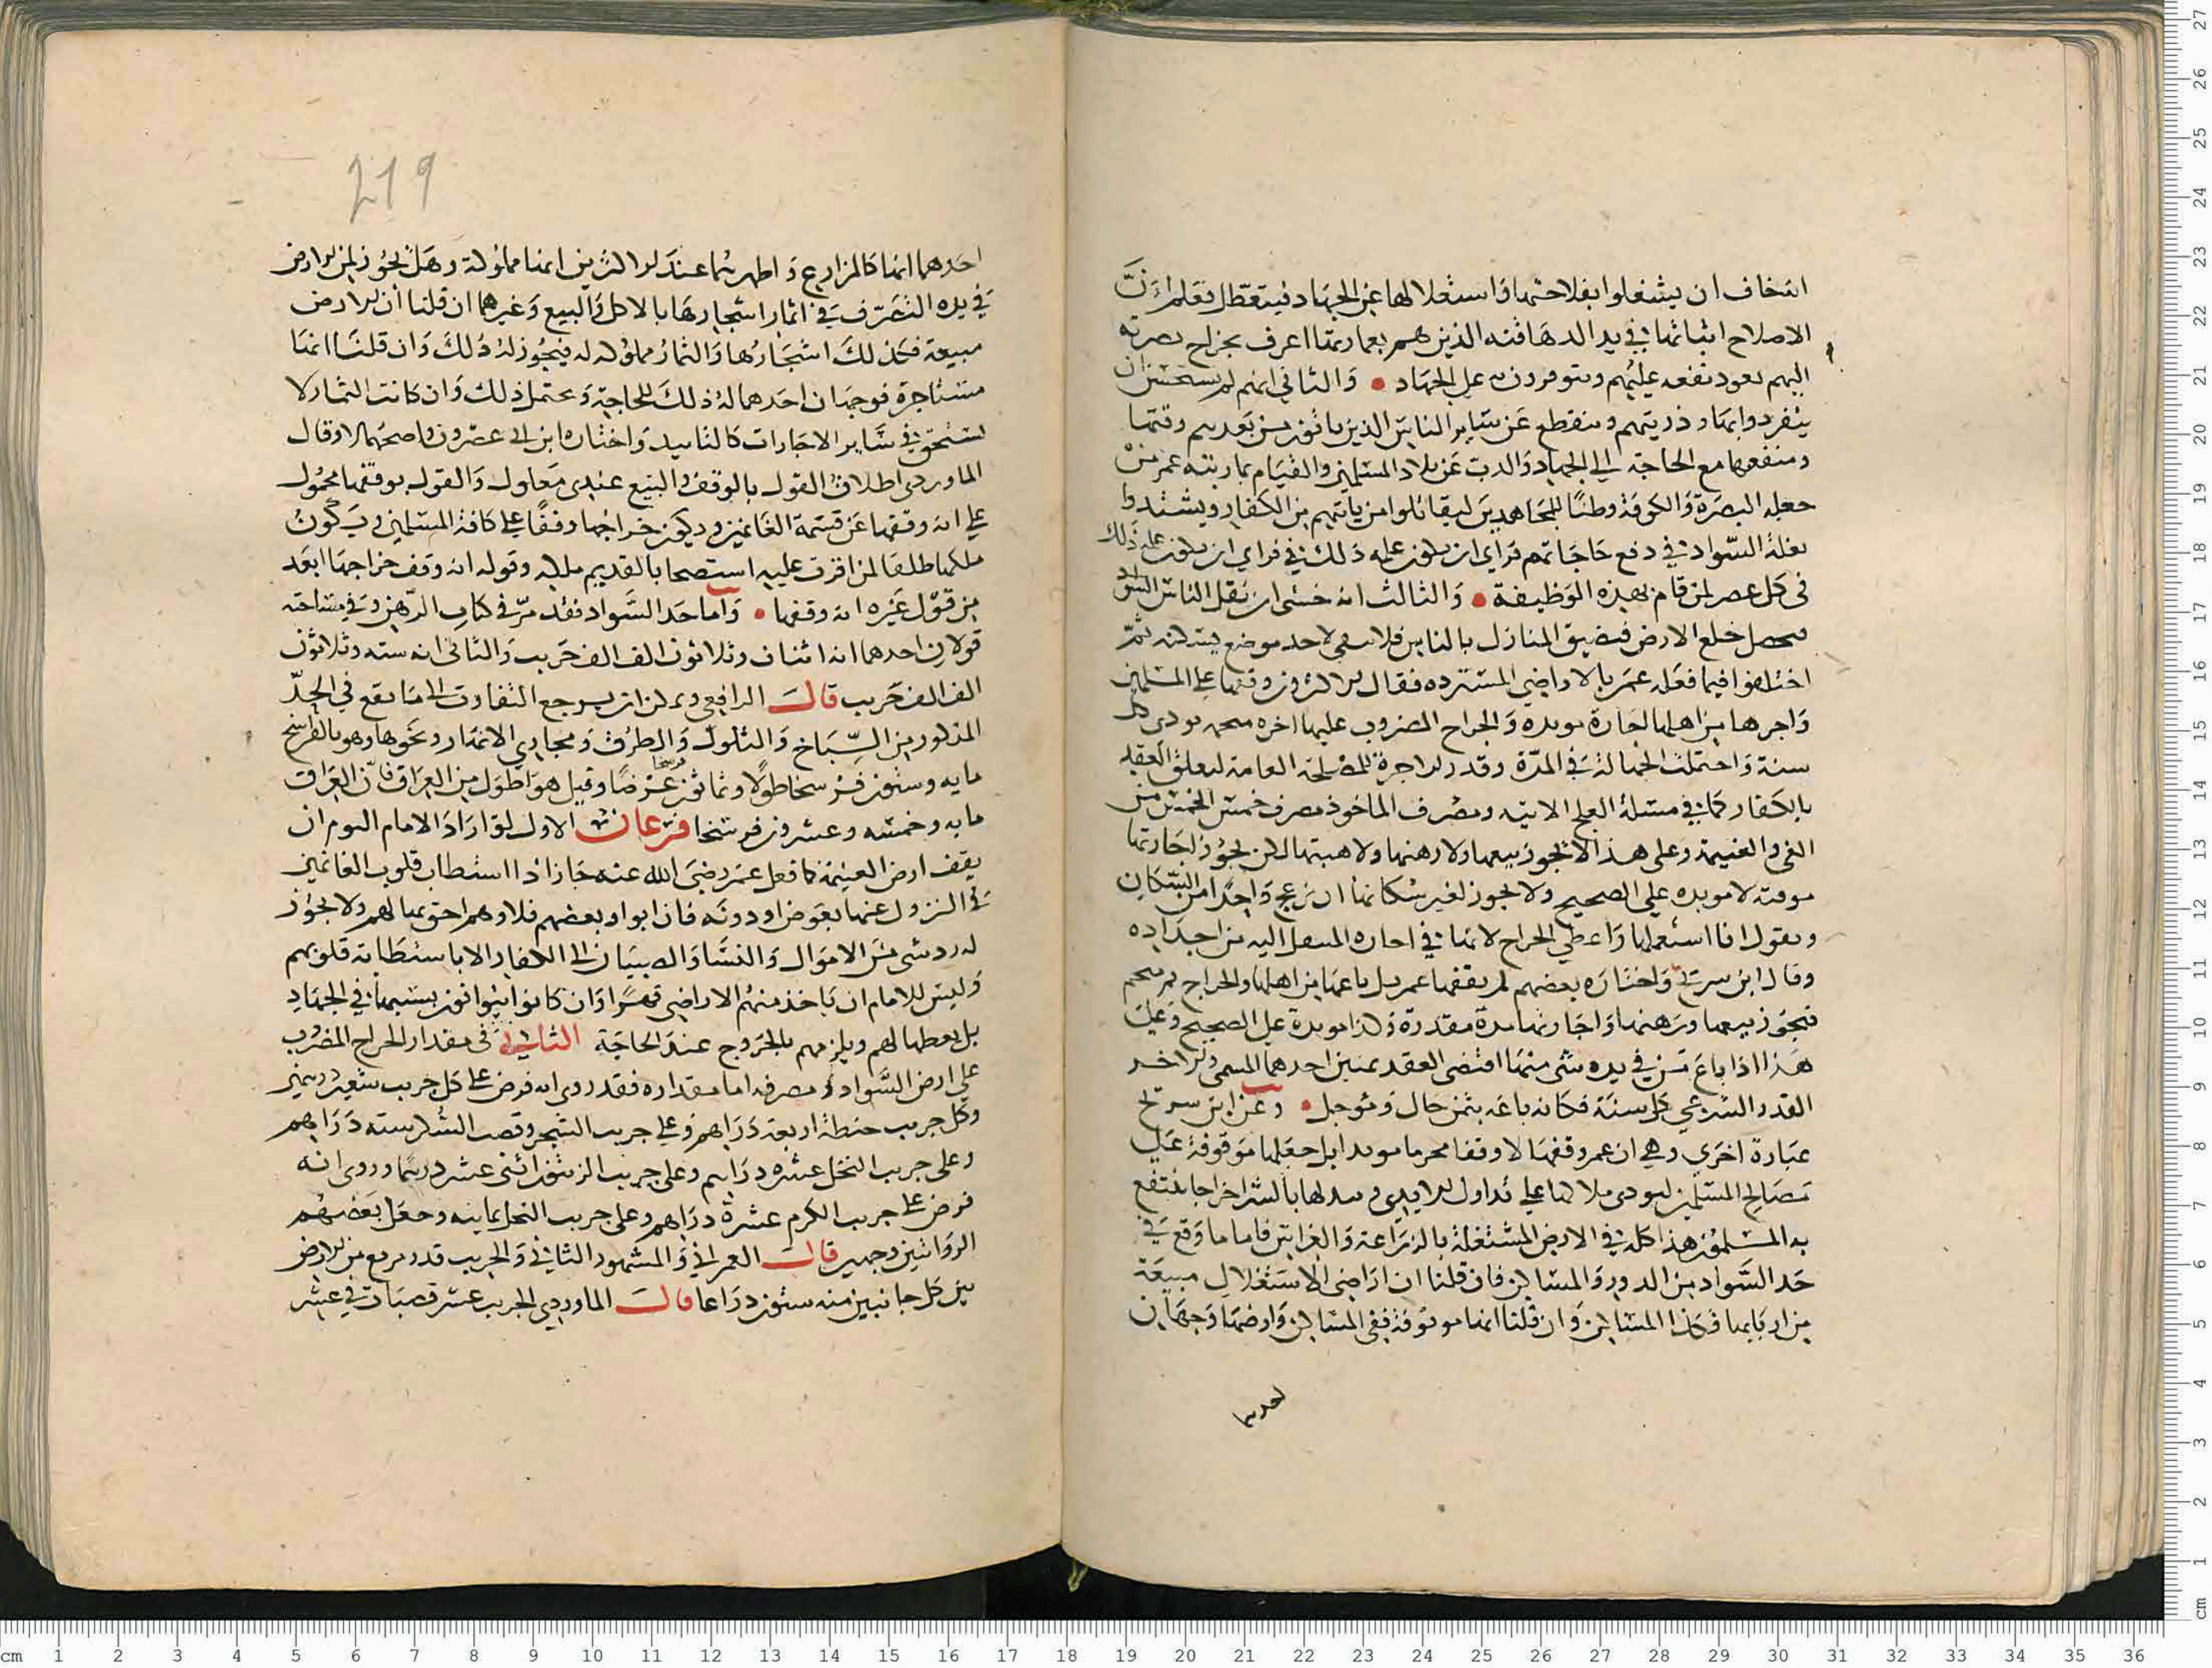 انه خاف ان يشتغلوا بفلاحتها واستغلالها عن الجهاد فيتعطل فعلم ان
الاصلاح اثباتها في يد الدهاقنه الذين هم بعمارتها اعرف بخراج يصرفه
اليهم يعود نفعه عليهم ويتوفرون به على الجهاد والثاني انهم لم يستحسن ان
ينفردوا بها وذريتهم وينقطع عن سائر الناس الذين ياتون من بعدهم رقبتها
ومنفعتها مع الحاجة الى الجهاد والذب عن بلاد المسلمين والقيام بما رتبه عمر من
جعله البصرة والكوفة وطنا للمجاهدين ليقاتلوا من ياتيهم من الكفار ويستمدوا
بغلة السواد في دفع حاجاتهم فراى ان يكون عليه ذلك في فراى ان يكون عليه ذلك
في كل عصر لمن قام بهذه الوظيفة والثالث انه خشى ان ينقل الناس السواد
فيحصل خلع الارض فتضيق المنازل بالناس فلا يبقى لاحد موضع يسكنه ثم
اختلفوا فيما فعله عمر بالاراضي المستردة فقال الاكثرون وقفها على المسلمين
واجرها من اهلها اجارة موبده والخراج المضروب عليها اجره منجمه تودى كل
سنة واحتملت الجهالة في المدة وقدر الاجرة للمصلحة العامة لتعلق العقد
بالكفار كما في مسئلة العلج الاتيه ومصرف الماخوذ مصرف خمس الخمس من
الفي والغنيمة وعلى هذا لا يجوز بيعها ولا رهنها ولا هبتها لكن يجوز اجارتها
موقتة لا موبده على الصحيح ولا يجوز لغير سكانها ان يزعج واحدا من السكان
ويقول انا استغلها واعطي الخراج لانها في اجاره المنتقل اليه من اجداده
وقال ابن سريج واختاره بعضهم لم يقفها عمر بل باعها من اهلها والخراج ثمن منجم
فيجوز بيعها ورهنها واجارتها مدة مقدرة وكذا موبدة على الصحيح وعلى
هذا اذا باع من في يده شي منها اقتضى العقد ثمنين احدهما المسمى والاخر
القدر الشرعي كل سنة فكانه باعه بثمن حال وموجل وعن ابن سريج
عبارة اخرى وهي ان عمر وقفها لا وقفا محرما موبدا بل جعلها موقوفة على
مصالح المسلمين ليودى ملاكها على تداول الايدي وتبدلها بالشرا خراجا ينتفع
به المسلمون هذا كله في الارض المشتغلة بالزراعة والغراس فاما ما وقع في
حد السواد من الدور والمساكن فان قلنا ان اراضي الاستغلال مبيعة
من اربابها فكذا المساكن وان قلنا انها موقوفة ففي المساكن وارضها وجهان
احدهما
219
احدهما انها كالمزارع واظهرهما عند الاكثرين انها مملوكة وهل يجوز لمن الارض
في يده التصرف في اثمار اشجارها بالاكل والبيع وغيرها ان قلنا ان الارض
مبيعة فكذلك اشجارها والثمار مملوكة له فيجوز له ذلك وان قلنا انها
مستاجرة فوجهان احدهما له ذلك للحاجة ويحتمل ذلك وان كانت الثمار لا
تستحق في سائر الاجارات كالتابيد واختاره ابن ابى عصرون واصحهما لا وقال
الماوردى اطلاق القول بالوقف والبيع عندى معلول والقول بوقفها محمول
على انه وقفها عن قسمة الغانمين وديكون خراجها وقفا على كافة المسلمين ويكون
ملكها طلقا لمن اقرت عليه استصحابا لقديم ملكه وقوله انه وقف خراجها ابعد
من قول غيره انه وقفها واما حد السواد فقد مر في كتاب الرهن وفي مساحته
قولان احدهما انه اثنان وثلاثون الف الف جريب والثانى انه سته وثلاثون
الف الف جريب قال الرافعي ويمكن ان يرجع التفاوت الى ما يقع في الحد
المذكور من السباخ والتلول والطرف ومجاري الانهار ونحوها وهو بالفراسخ
مايه وستون فرسخا طولا وثمانون فرسخا عرضا وقيل هو اطول من العراق فان العراق
مايه وخمسه وعشرون فرسخا فرعان الاول لو اراد الامام اليوم ان
يقف ارض الغنيمة كما فعل عمر رضي الله عنه جاز اذا استطاب قلوب الغانمين
في النزول عنها بعوض او دونه فان ابوا او بعضهم فلا وهم احق بمالهم ولا يجوز
له رد شي من الاموال والنسا والصبيان الى الكفار الا باستطابة قلوبهم
وليس للامام ان ياخذ منهم الاراضي قهرا وان كانوا يتوانون بسببها في الجهاد
بل يعطها لهم ويلزمهم بالخروج عند الحاجة الثاني في مقدار الخراج المضروب
على ارض السواد ومصرفه اما مقداره فقد روى انه فرض على كل جريب شعير درهمين
وكل جريب حنطة اربعة دراهم وعلى جريب الشجر وقصب السكر سته دراهم
وعلى جريب النخل عشره دراهم وعلى جريب الزيتون اثنى عشر درهما وروى انه
فرض على جريب الكرم عشرة دراهم وعلى جريب النخل ثمانيه وجعل بعضهم
الروايتين وجهين قال العمراني والمشهور الثاني والجريب قدر مربع من الارض
بين كل جانبين منه ستون ذراعا قال الماوردي الجريب عشر قصبات في عشر